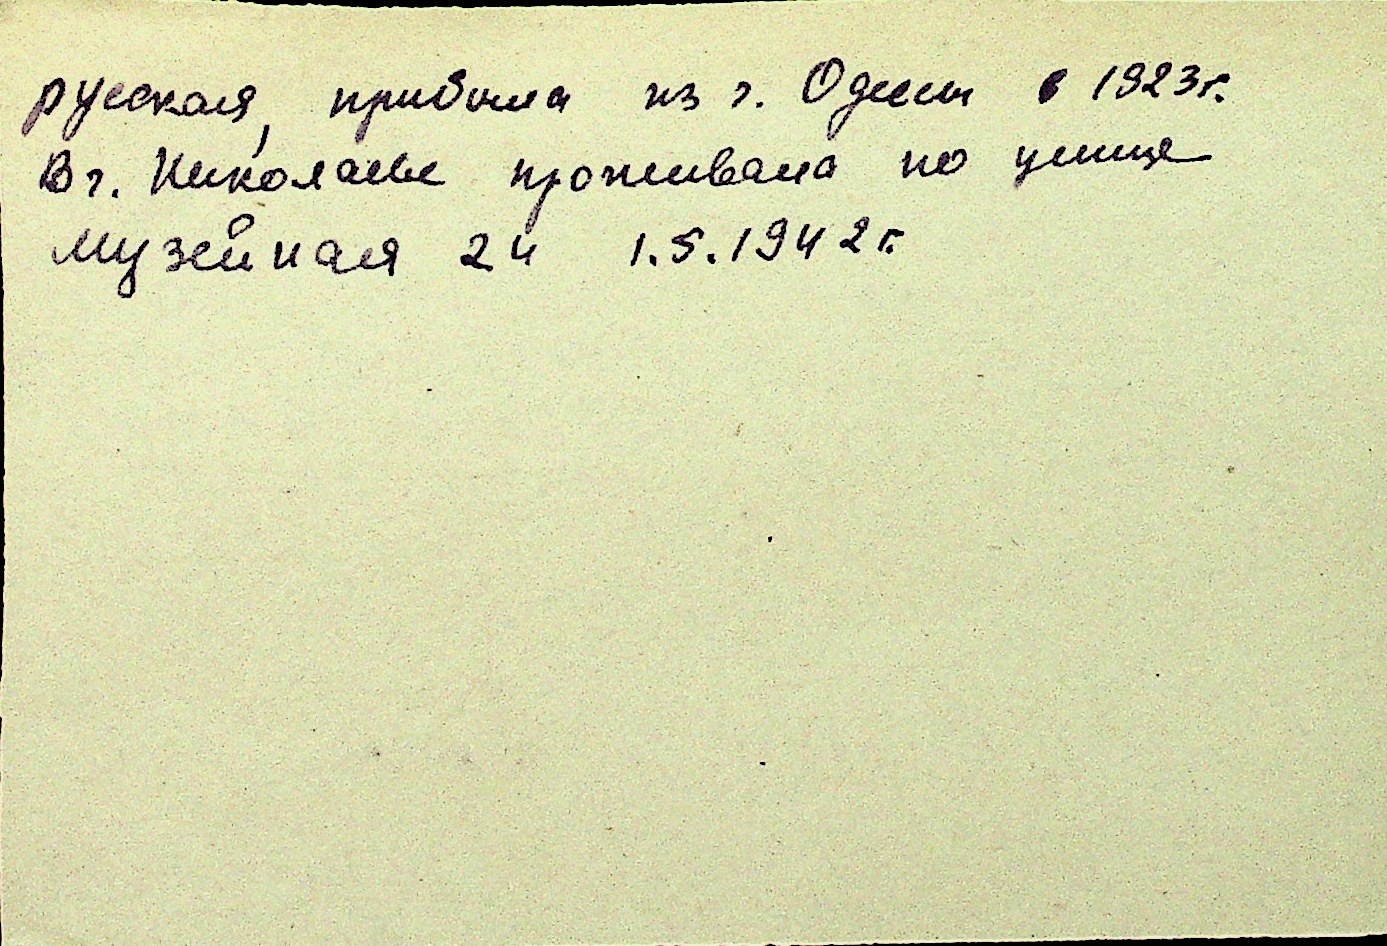 русская, прибыла из г. Одессы в 1923 г.
В г. Николаеве проживала по улице
Музейная 24 1.5.1942 г.